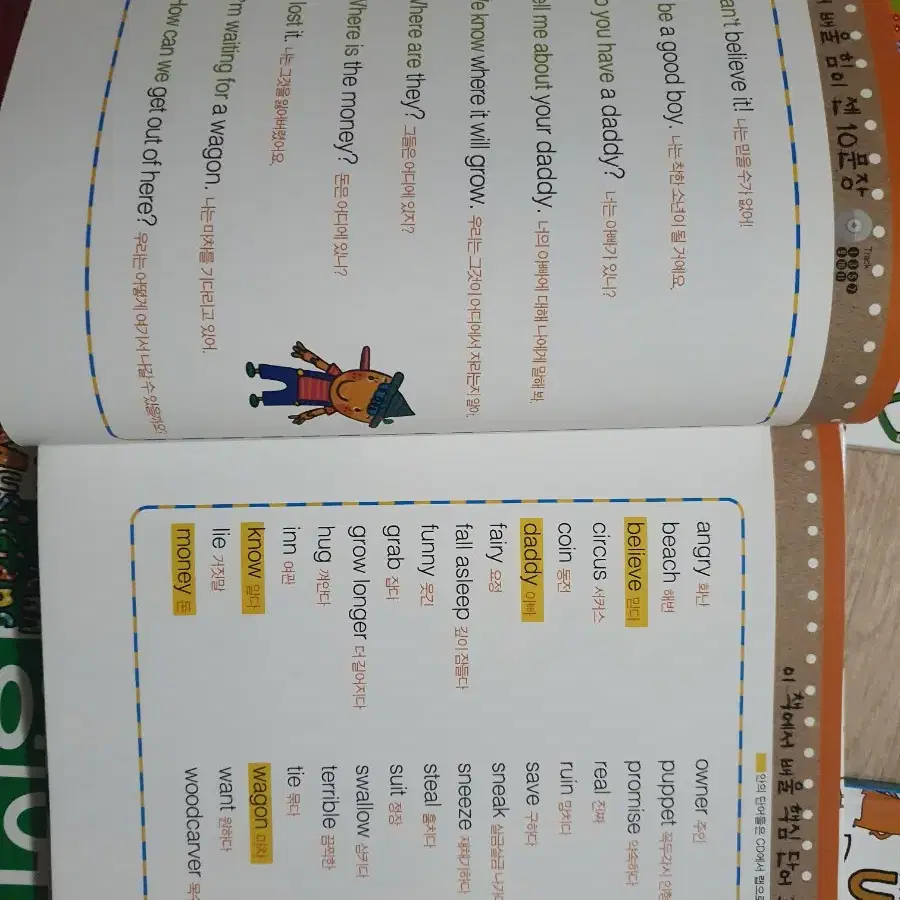 배울 힘이 센 10문장
Track
an't believe it! 나는 믿을 수가 없어!
be a good boy. 나는 착한 소년이 될 거예요.
you have a daddy? 너는 아빠가 있니?
ell me about your daddy. 너의 아빠에 대해 나에게 말해 봐.
e know where it will grow. 우리는 그것이 어디에서 자라는지 알아.
here are they? 그들은 어디에 있지?
here is the money? 돈은 어디에 있니?
lost it. 나는 그것을 잃어버렸어요.
'm waiting for a wagon. 나는 마차를 기다리고 있어.
How can we get out of here? 우리는 어떻게 여기서 나갈 수 있을까요?
이 책에서 배울 핵심 단어
안의 단어들은 CD에서 랩으로
angry 화난
beach 해변
believe 믿다
circus 서커스
coin 동전
daddy 아빠
fairy 요정
fall asleep 깊이 잠들다
funny 웃긴
grab 잡다
grow longer 더 길어지다
hug 껴안다
inn 여관
know 알다
lie 거짓말
money 돈
owner 주인
puppet 꼭두각시 인형
promise 약속하다
real 진짜
ruin 망치다
save 구하다
sneak 살금살금 나가다
sneeze 재채기하다
steal 훔치다
suit 정장
swallow 삼키다
terrible 끔찍한
tie 묶다
wagon 마차
want 원하다
woodcarver 목수